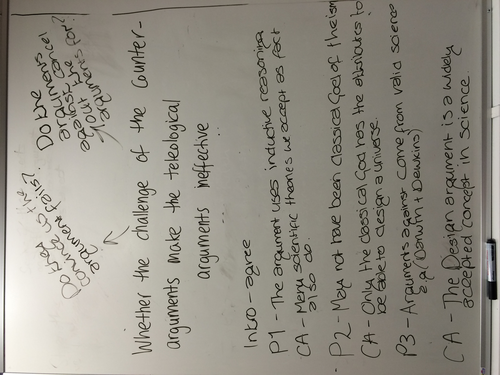 Does this
convince us the
argument fails?
Do the
arguments
against cancel
out the
arguments for?
Whether the challenge of the counter-
arguments make the teleological
arguments ineffective
Intro - agree
P1 - The argument uses inductive reasoning
CA - Many scientific theories we accept as fact
also do.
P2 - May not have been classical God of theism
CA - Only the classical God has the attributes to
be able to design a universe.
P3 - Arguments against come from valid science
e.g. (Darwin + Dawkins)
CA - The Design argument is a widely
accepted concept in science.